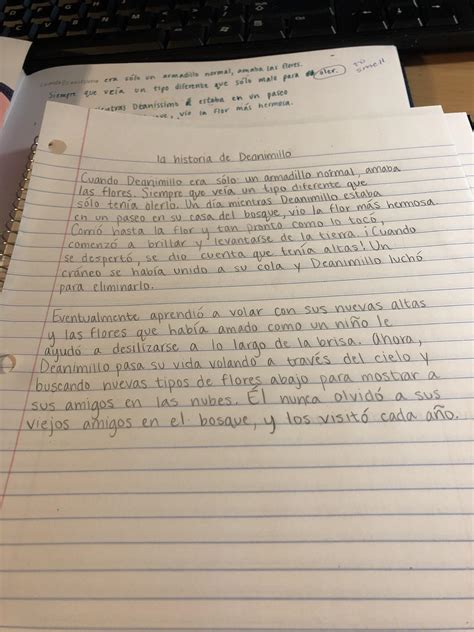 era sólo un armadillo normal, amaba las flores.
Siempre que veía un tipo diferente que sólo male para oler.
smell
Deaníssimo estaba en un paseo
vio la flor más hermosa.
la historia de Deanimillo
Cuando Deanimillo era sólo un armadillo normal, amaba
las flores. Siempre que veía un tipo diferente que
sólo tenía olerlo. Un día mientras Deanimillo estaba
en un paseo en su casa del bosque, vio la flor más hermosa.
Comió hasta la flor y tan pronto como lo tocó,
comenzó a brillar y levantarse de la tierra. ¡Cuando
se despertó, se dio cuenta que tenía altas! Un
cráneo se había unido a su cola y Deanimillo luchó
para eliminarlo.
Eventualmente aprendió a volar con sus nuevas altas
y las flores que había amado como un niño le
ayudó a desilizarse a lo largo de la brisa. Ahora,
Deanimillo pasa su vida volando a través del cielo y
buscando nuevas tipos de flores abajo para mostrar a
sus amigos en las nubes. Él nunca olvidó a sus
viejos amigos en el bosque, y los visitó cada año.